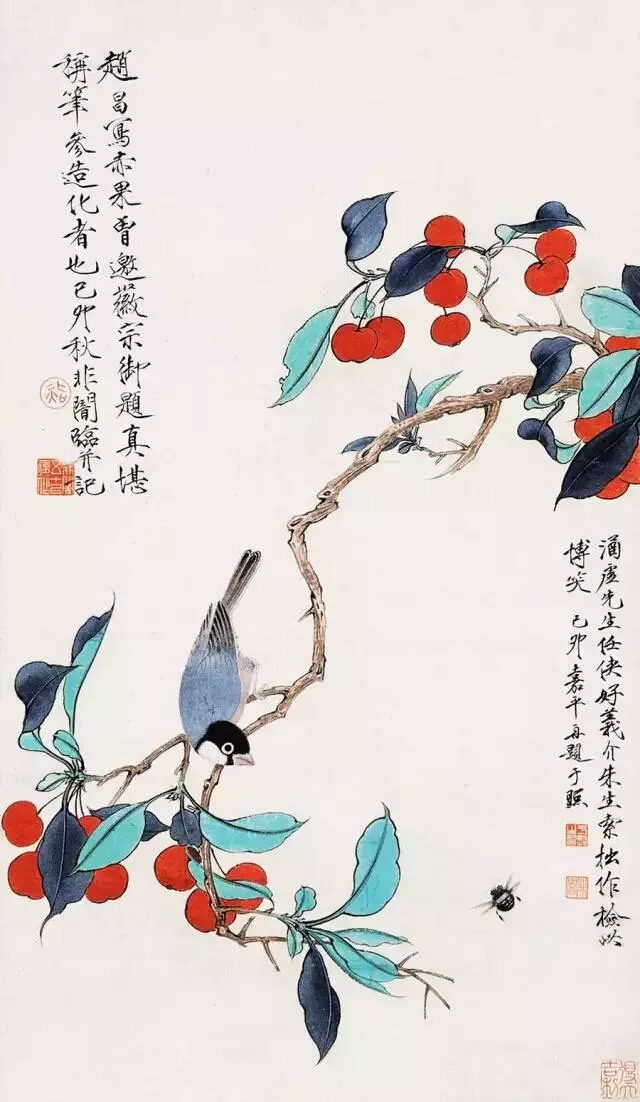 趙昌寫赤果曾邀徽宗御題真堪
稱筆參造化者也己卯秋非闇臨并記
涌虛先生任俠好義介朱生索拙作檢以
博笑己卯嘉平再題于照